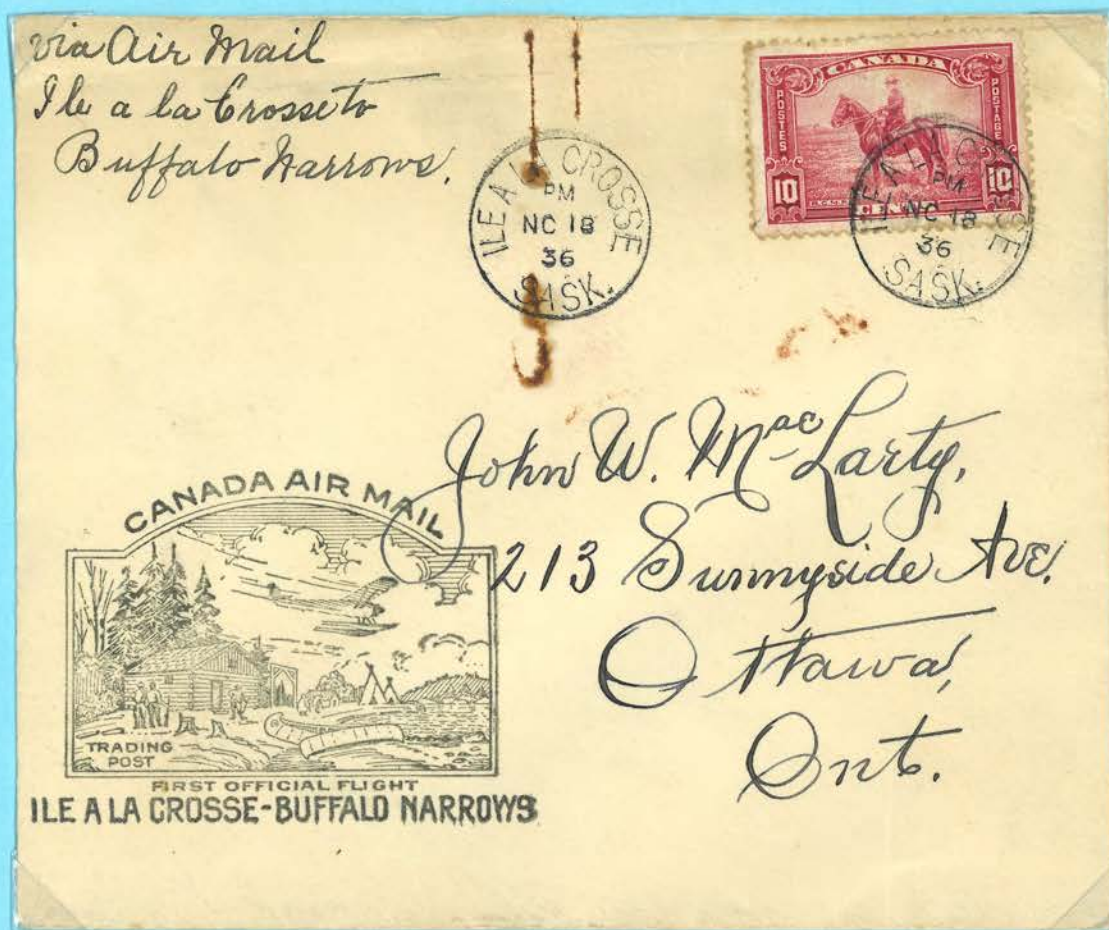 via Air Mail
Ile a la Crosse to
Buffalo Narrows.
CANADA
POSTES
POSTAGE
10 10
CENTS
ILE A LA CROSSE
PM
NO 18
36
SASK.
ILE A LA CROSSE
PM
NO 18
36
SASK.
John W. MacLarty,
213 Sunnyside Ave.
Ottawa,
Ont.
CANADA AIR MAIL
TRADING
POST
FIRST OFFICIAL FLIGHT
ILE A LA CROSSE-BUFFALO NARROWS